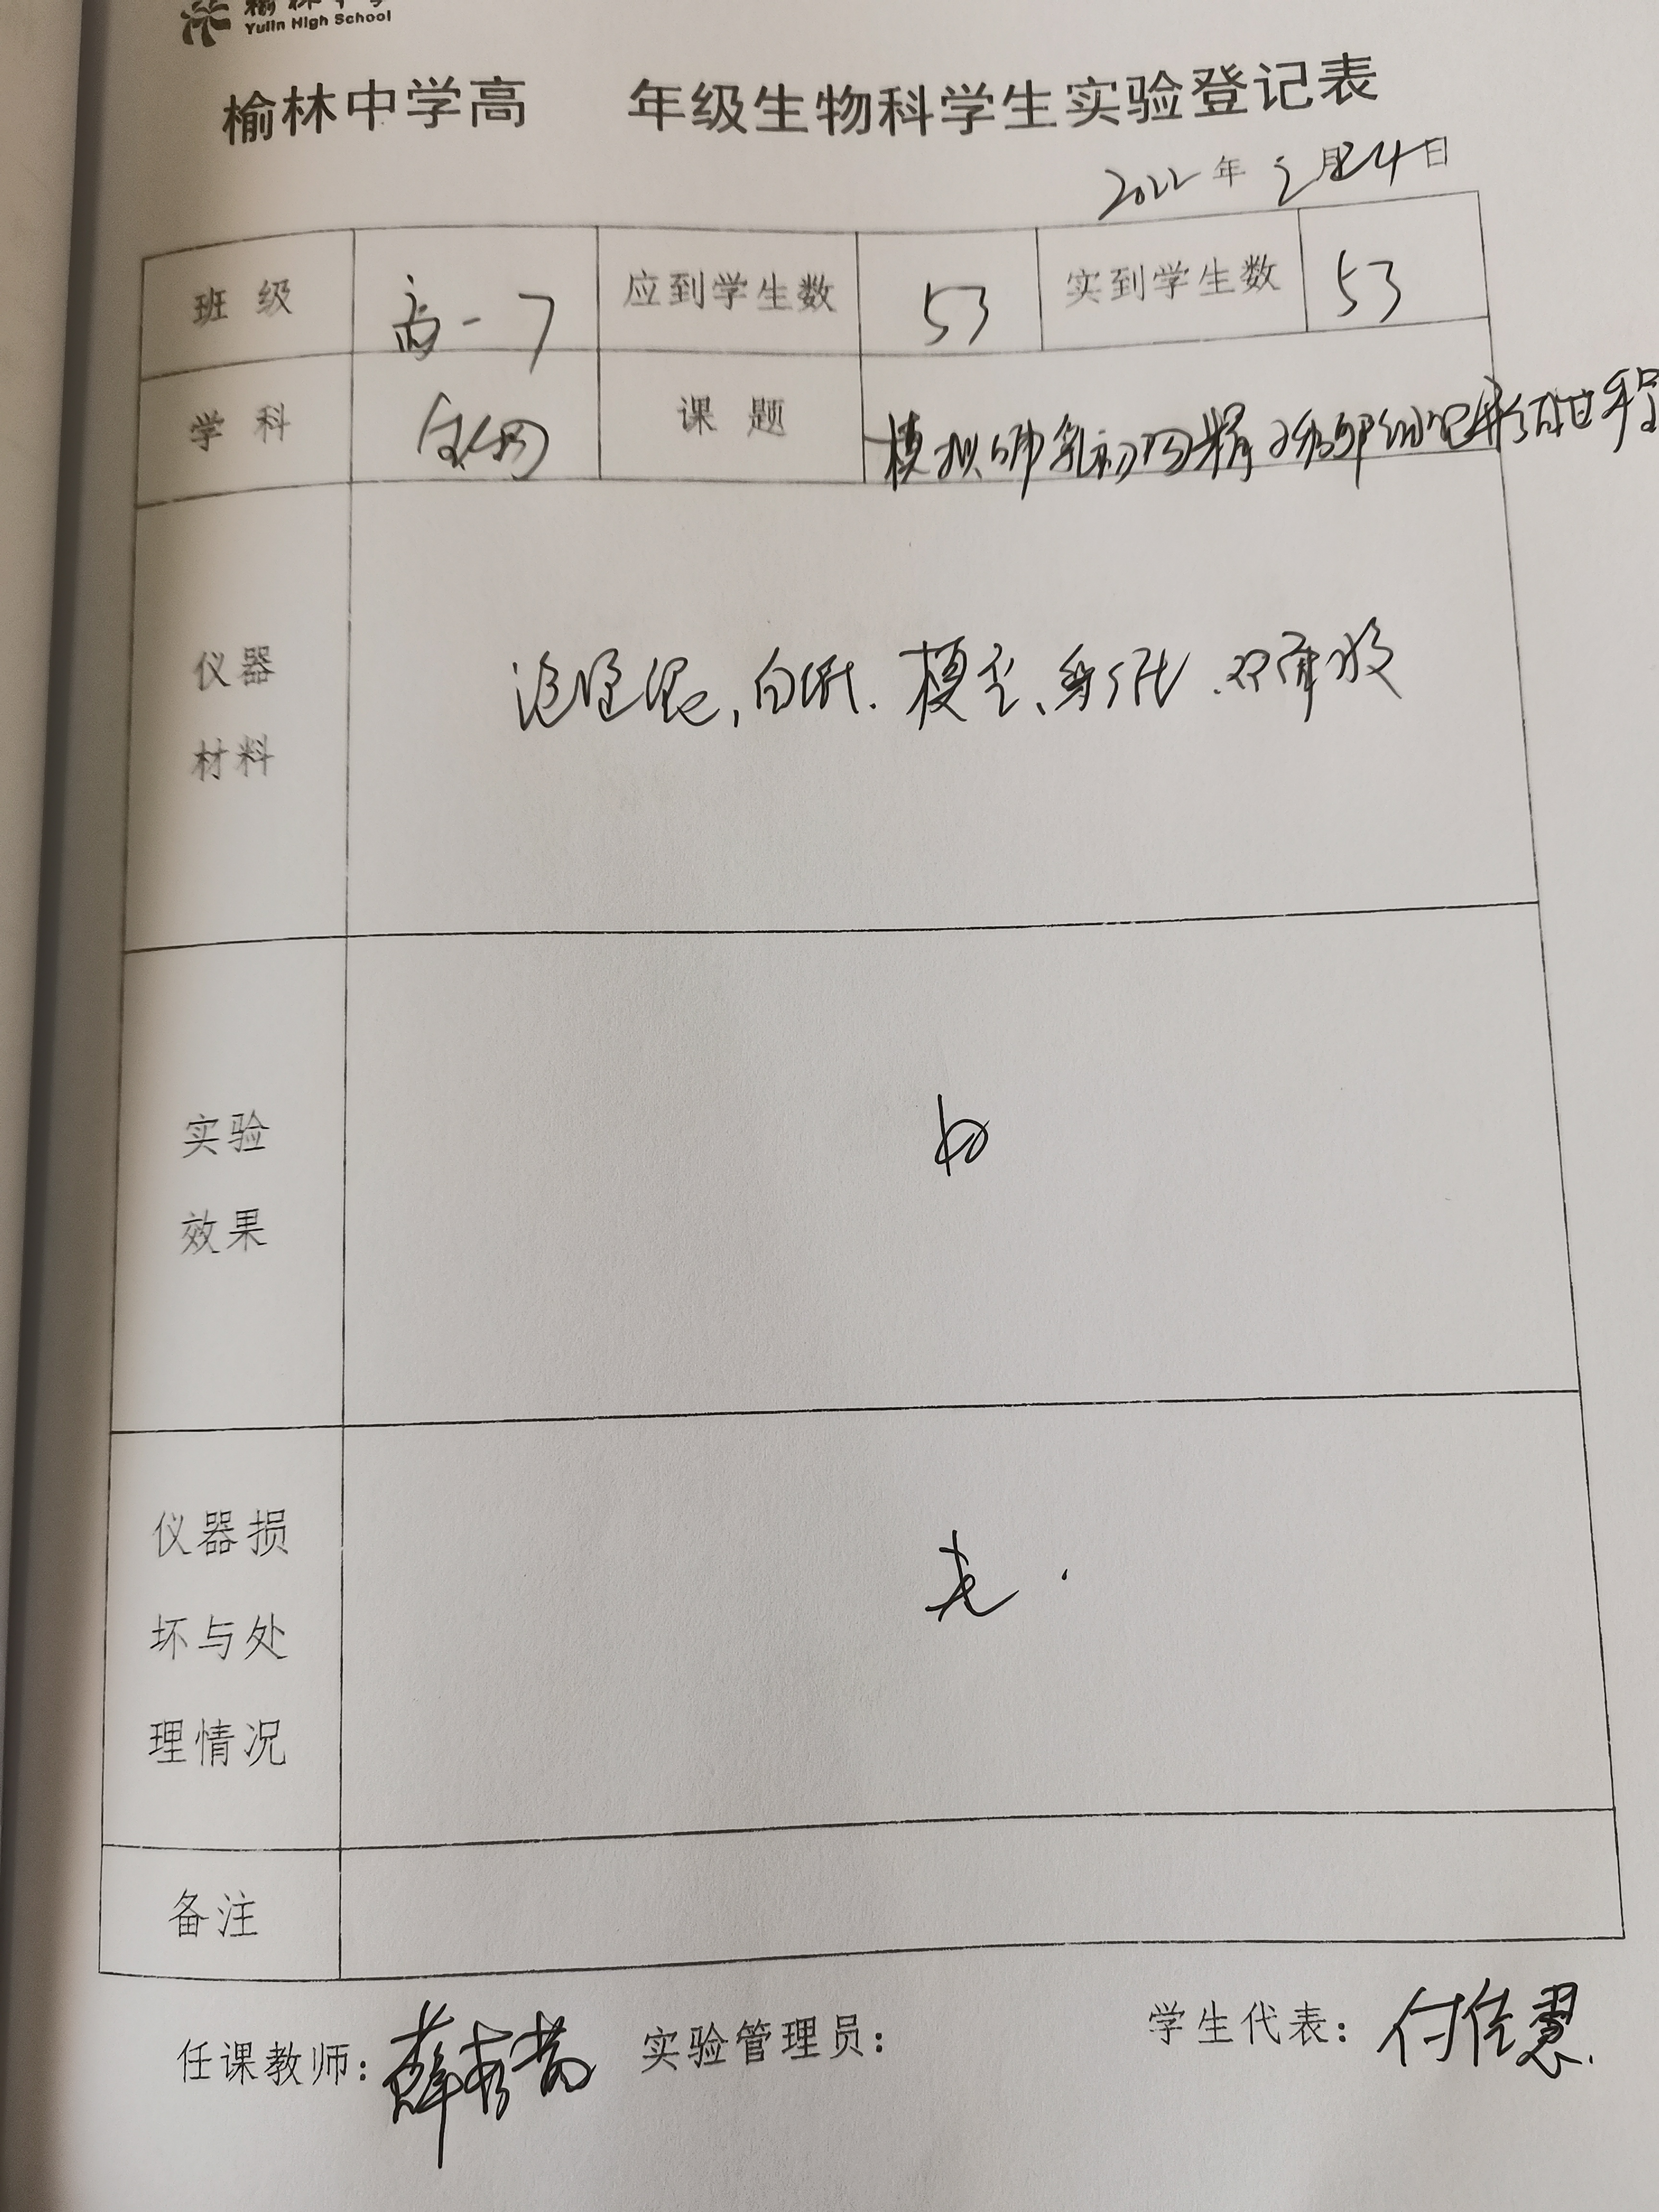 榆林中学
Yulin High School
榆林中学高 年级生物科学生实验登记表
2022年3月24日
班级 高一7 应到学生数 53 实到学生数 53
学科 生物 课题 模拟哺乳动物精子和卵细胞形成过程
仪器
材料
橡皮泥,白纸.模型、
实验
效果
好
仪器损
坏与处
理情况
无.
备注
任课教师: 实验管理员: 学生代表: